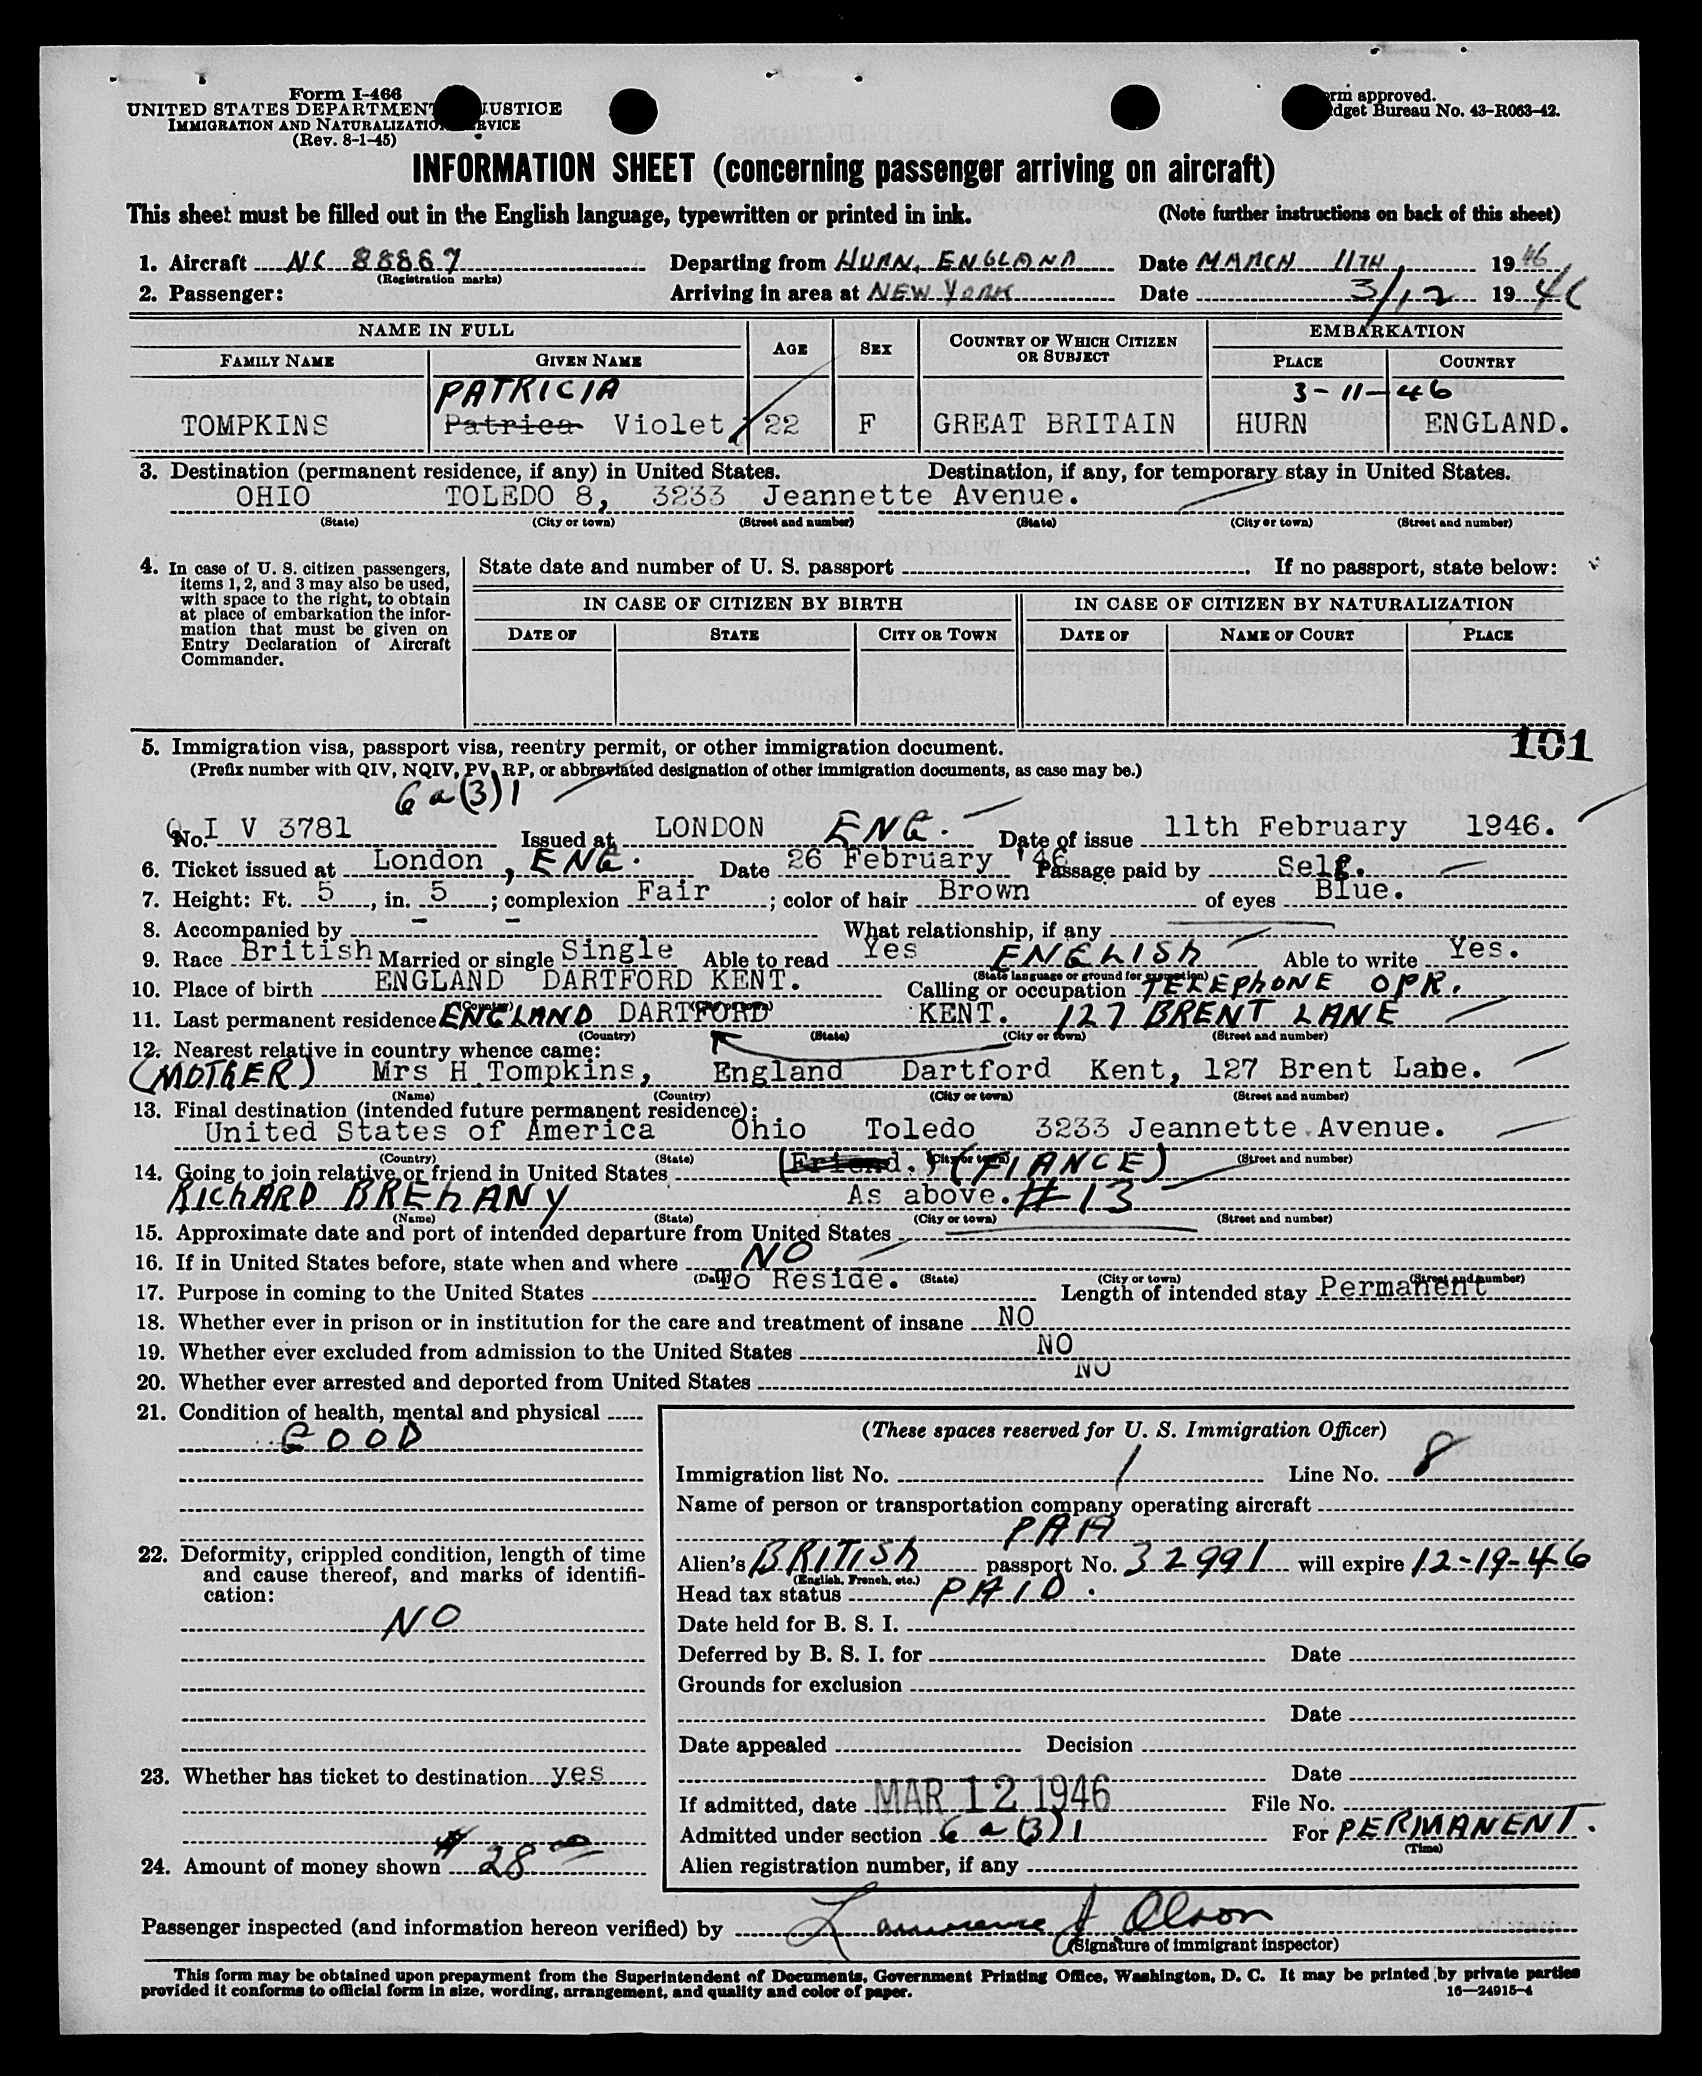 Form I-466
UNITED STATES DEPARTMENT JUSTICE
IMMIGRATION AND NATURALIZATION SERVICE
(Rev. 8-1-45)
Form approved.
Budget Bureau No. 43-R063-42.
INFORMATION SHEET (concerning passenger arriving on aircraft)
This sheet must be filled out in the English language, typewritten or printed in ink. (Note further instructions on back of this sheet)
1. Aircraft NC 88887 Departing from HURN, ENGLAND Date MARCH 11TH, 1946
(Registration marks)
2. Passenger: Arriving in area at NEW YORK Date 3/12 1946
NAME IN FULL AGE SEX COUNTRY OF WHICH CITIZEN OR SUBJECT EMBARKATION
FAMILY NAME GIVEN NAME PLACE COUNTRY
PATRICIA 3-11-46
TOMPKINS Patrica Violet 22 F GREAT BRITAIN HURN ENGLAND.
3. Destination (permanent residence, if any) in United States. Destination, if any, for temporary stay in United States.
OHIO TOLEDO 8, 3233 Jeannette Avenue.
(State) (City or town) (Street and number) (State) (City or town) (Street and number)
4. In case of U. S. citizen passengers, items 1, 2, and 3 may also be used, with space to the right, to obtain at place of embarkation the information that must be given on Entry Declaration of Aircraft Commander.
State date and number of U. S. passport . If no passport, state below:
IN CASE OF CITIZEN BY BIRTH IN CASE OF CITIZEN BY NATURALIZATION
DATE OF STATE CITY OR TOWN DATE OF NAME OF COURT PLACE
101
5. Immigration visa, passport visa, reentry permit, or other immigration document.
(Prefix number with QIV, NQIV, PV, RP, or abbreviated designation of other immigration documents, as case may be.)
6 a (3) 1
No. Q I V 3781 Issued at LONDON ENG. Date of issue 11th February 1946.
6. Ticket issued at London, ENG. Date 26 February '46 Passage paid by Self.
7. Height: Ft. 5, in. 5; complexion Fair; color of hair Brown of eyes Blue.
8. Accompanied by - - What relationship, if any
9. Race British Married or single Single Able to read Yes ENGLISH Able to write Yes.
(State language or ground for exemption)
10. Place of birth ENGLAND DARTFORD KENT. Calling or occupation TELEPHONE OPR.
(Country) (City or town)
11. Last permanent residence ENGLAND DARTFORD KENT. 127 BRENT LANE
(Country) (State) (City or town) (Street and number)
12. Nearest relative in country whence came:
(MOTHER) Mrs H Tompkins, England Dartford Kent, 127 Brent Lane.
(Name) (Country) (City or town) (Street and number)
13. Final destination (intended future permanent residence):
United States of America Ohio Toledo 3233 Jeannette Avenue.
(Country) (State) (City or town) (Street and number)
14. Going to join relative or friend in United States (Friend.) (FIANCE)
RICHARD BREHANY As above. #13
(Name) (State) (City or town) (Street and number)
15. Approximate date and port of intended departure from United States
16. If in United States before, state when and where NO
(Date) (State) (City or town) (Street and number)
17. Purpose in coming to the United States To Reside. Length of intended stay Permanent
18. Whether ever in prison or in institution for the care and treatment of insane NO
19. Whether ever excluded from admission to the United States NO
20. Whether ever arrested and deported from United States NO
21. Condition of health, mental and physical
GOOD
22. Deformity, crippled condition, length of time and cause thereof, and marks of identification:
NO
23. Whether has ticket to destination yes
24. Amount of money shown $28 00
(These spaces reserved for U. S. Immigration Officer)
Immigration list No. 1 Line No. 8
Name of person or transportation company operating aircraft
PAA
Alien's BRITISH passport No. 32991 will expire 12-19-46
(English, French, etc.)
Head tax status PAID.
Date held for B. S. I.
Deferred by B. S. I. for Date
Grounds for exclusion
Date
Date appealed Decision
Date
If admitted, date MAR 12 1946 File No.
Admitted under section 6 a (3) 1 For PERMANENT.
(Time)
Alien registration number, if any
Passenger inspected (and information hereon verified) by Lawrence J Olson
(Signature of immigrant inspector)
This form may be obtained upon prepayment from the Superintendent of Documents, Government Printing Office, Washington, D. C. It may be printed by private parties
provided it conforms to official form in size, wording, arrangement, and quality and color of paper. 16—24915-4